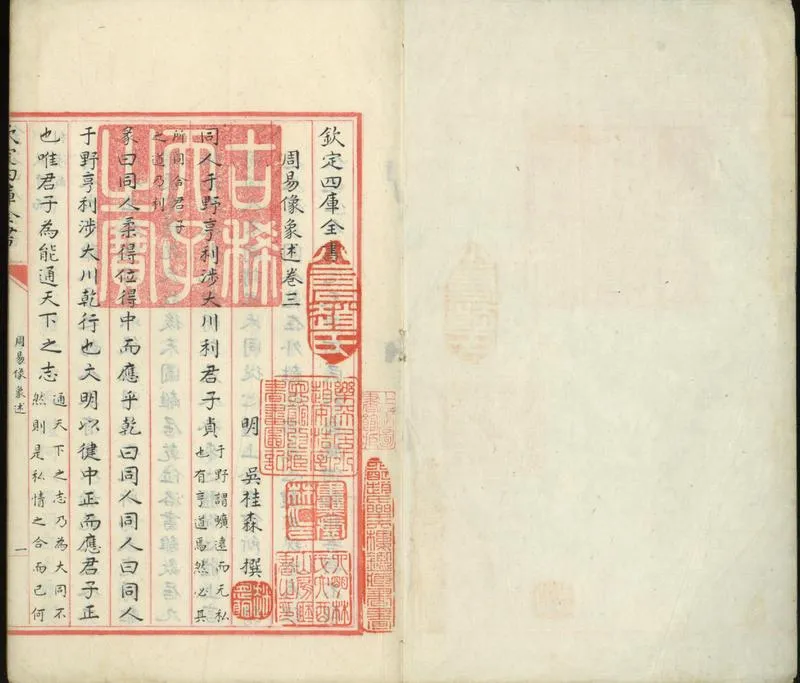 欽定四庫全書
周易像象述卷三
明 吳桂森 撰
同人于野亨利涉大川利君子貞于野謂曠遠而无私
也有亨道焉然必其
所同合君子
之道乃利
彖曰同人柔得位得中而應乎乾曰同人同人曰同人
于野亨利涉大川乾行也文明以健中正而應君子正
也唯君子為能通天下之志通天下之志乃為大同不
然則是私情之合而已何
欽定四庫全書
周易像象述
一
古稀天子之寶